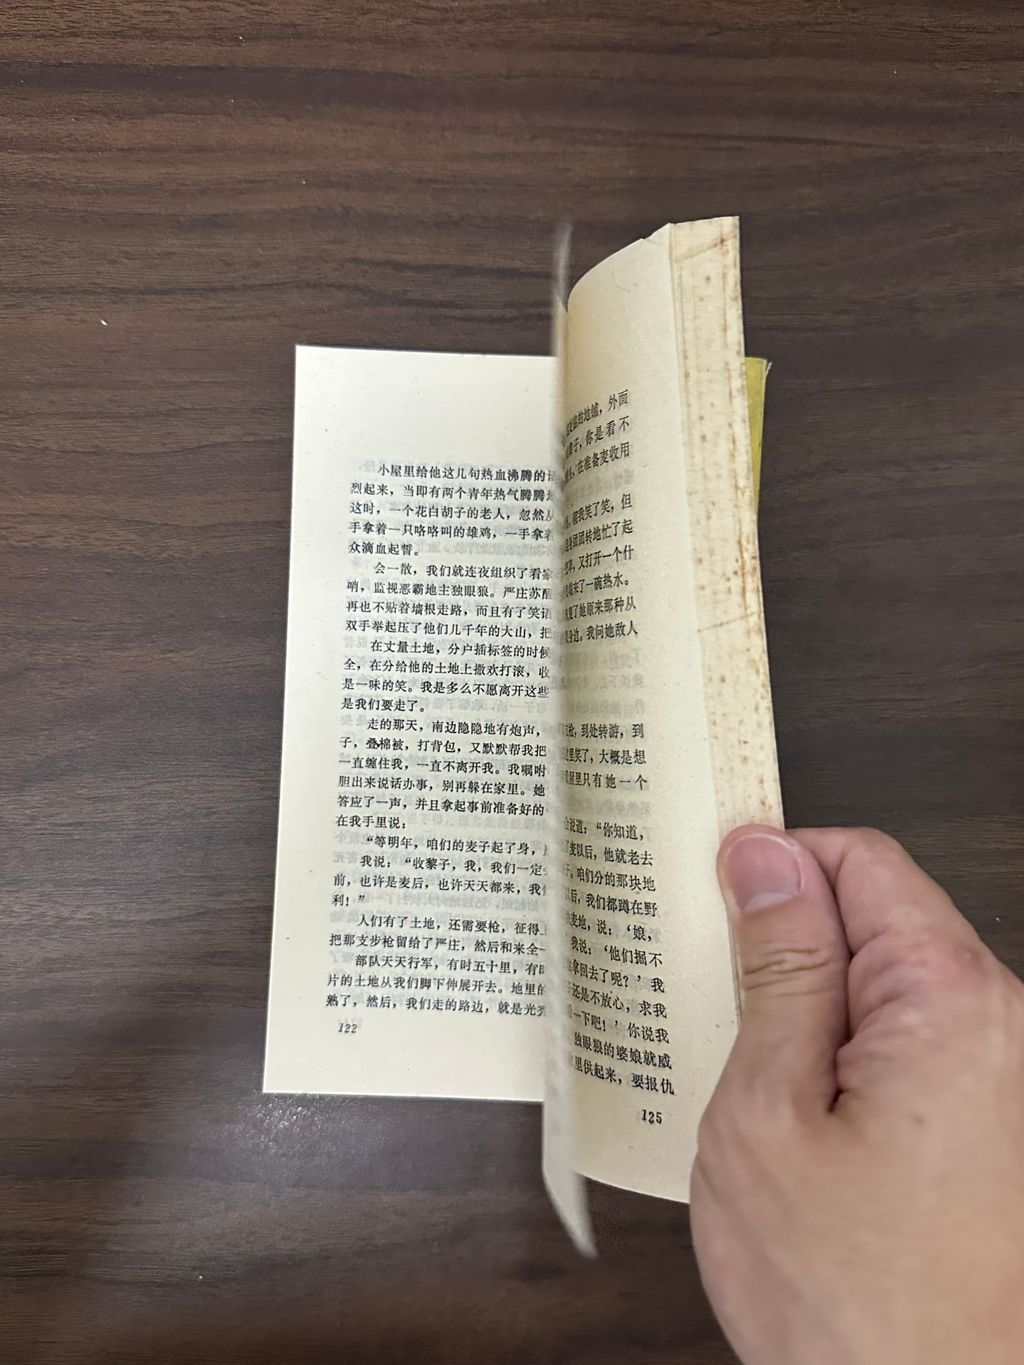 小屋里给他这几句热血沸腾的话
烈起来，当即有两个青年热气腾腾地
这时，一个花白胡子的老人，忽然从
手拿着一只咯咯叫的雄鸡，一手拿着
众滴血起誓。
会一散，我们就连夜组织了看家
哨，监视恶霸地主独眼狼。严庄苏醒
再也不贴着墙根走路，而且有了笑语
双手举起压了他们几千年的大山，把
在丈量土地，分户插标签的时候
全，在分给他的土地上撒欢打滚，收
是一味的笑。我是多么不愿离开这些
是我们要走了。
走的那天，南边隐隐地有炮声，
子，叠棉被，打背包，又默默帮我把
一直缠住我，一直不离开我。我嘱咐
胆出来说话办事，别再躲在家里。她
答应了一声，并且拿起事前准备好的
在我手里说：
“等明年，咱们的麦子起了身，
我说：“收黎子，我，我们一定
前，也许是麦后，也许天天都来，我们
利！”
人们有了土地，还需要枪，征得上
把那支步枪留给了严庄，然后和来全一
部队天天行军，有时五十里，有时
片的土地从我们脚下伸展开去。地里的
熟了，然后，我们走的路边，就是光秃
122
的地域，外面
子，你是看不
，在准备麦收用
我笑了笑，但
团团转地忙了起
，又打开一个什
来了一碗热水。
了她原来那种从
身边。我问她敌人
枪，到处转游，到
里笑了，大概是想
屋里只有她一个
会说道：“你知道，
了麦以后，他就老去
子。咱们分的那块地
以后，我们都蹲在野
麦地，说：‘娘，
我说：‘他们掘不
拿回去了呢？’我
子还是不放心，求我
一下吧！’你说我
独眼狼的婆娘就威
里供起来，要报仇
125